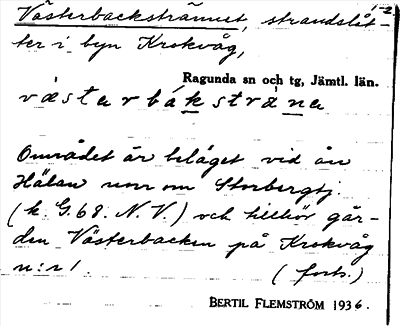 Västerbacksträmnet, strandslåt-
ter i byn Krokvåg,
Ragunda sn och tg, Jämtl. län.
väster bák strä̀ne
Området är beläget vid ån
Hälan norr om Storbergtj.
(k. G. 68. N. V.) och tillhör går-
den Västerbacken på Krokvåg
n:r 1. (forts.)
BERTIL FLEMSTRÖM 1936.